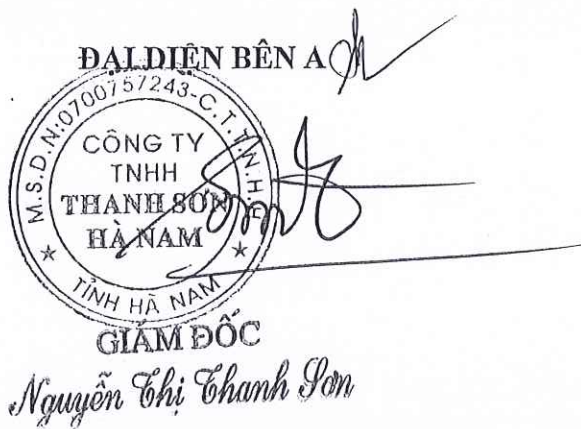 ĐẠI DIỆN BÊN A
M.S.D.N:0700757243-C.T.T.N.H.H
CÔNG TY
TNHH
THANH SƠN
HÀ NAM
TỈNH HÀ NAM
GIÁM ĐỐC
Nguyễn Thị Thanh Sơn